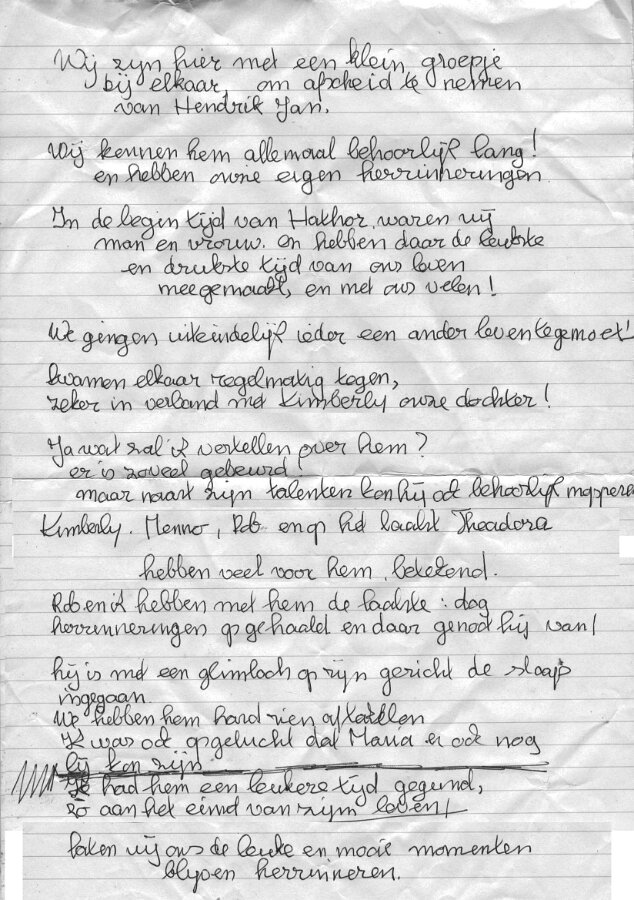 Wij zijn hier met een klein groepje
bij elkaar, om afscheid te nemen
van Hendrik Jan.
Wij kennen hem allemaal behoorlijk lang!
en hebben onze eigen herrinneringen
In de begin tijd van Hathor, waren wij
man en vrouw. en hebben daar de leukste
en drukste tijd van ons leven
meegemaakt, en met ons velen!
We gingen uiteindelijk ieder een ander leven tegemoet!
kwamen elkaar regelmatig tegen,
zeker in verband met Kimberly onze dochter!
Ja wat zal ik vertellen over hem?
er is zoveel gebeurd!
maar naast zijn talenten kon hij ook behoorlijk mopperen
Kimberly. Menno, Rob en op het laatst Theadora
hebben veel voor hem, betekend.
Rob en ik hebben met hem de laatste dag
herrinneringen opgehaald en daar genoot hij van!
hij is met een glimloch op zijn gezicht de slaap
ingegaan.
We hebben hem hard zien aftakelen
Ik was ook opgelucht dat Maria er ook nog
bij kon zijn
Ik had hem een leukere tijd gegund,
zo aan het eind van zijn leven!
Laten wij ons de leuke en mooie momenten
blijven herrinneren.